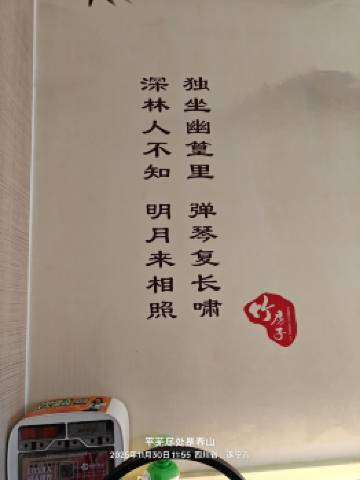 独坐幽篁里 弹琴复长啸
深林人不知 明月来相照
竹房子
平芜尽处是春山
2025年11月30日 11:55 四川省·遂宁市